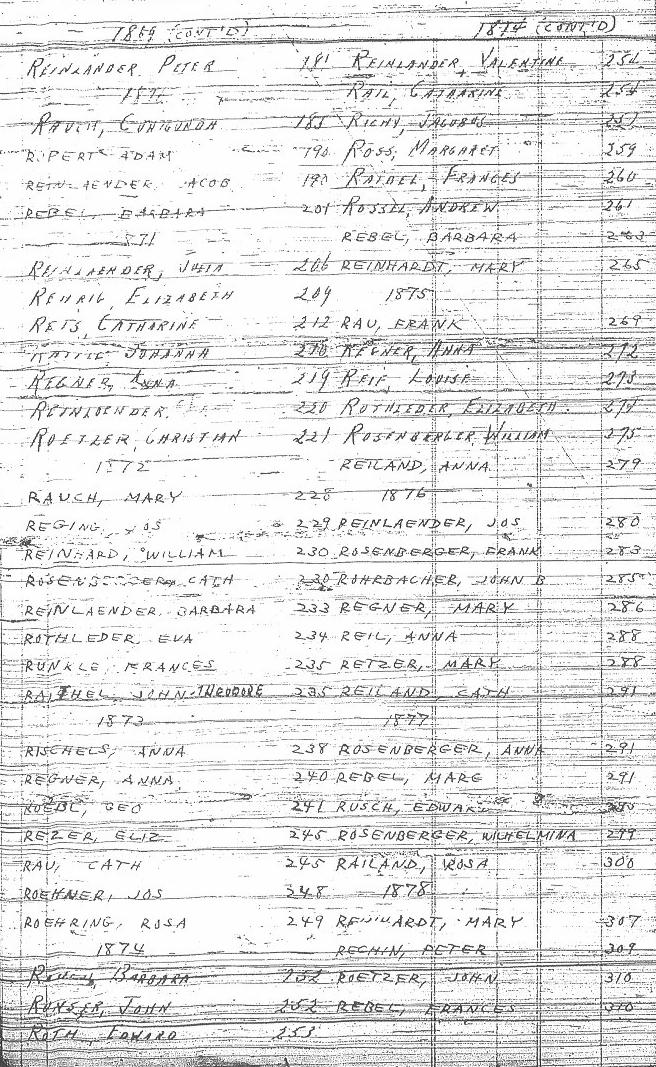 1869 (CONT'D)
REINLANDER, PETER 181
187
RAUCH, CUNIGUNDA 185
RIPERT ADAM 190
REINLAENDER, JACOB 190
REBEL, BARBARA 201
1871
REINLAENDER, JULIA 206
REHRIG, ELIZABETH 209
RETS, CATHARINE 212
JOHANNA 210
REGNER, ANNA 219
REINLOENDER, 220
ROETZLER, CHRISTIAN 221
1872
RAUCH, MARY 228
REGING, JOS 229
REINHARD, WILLIAM 230
ROSENBERGER, CATH 230
REINLAENDER, BARBARA 233
ROTHLEDER, EVA 234
RUNKLE, FRANCES 235
RAITHEL, JOHN-THEODORE 235
1873
RISCHELS, ANNA 238
REGNER, ANNA 240
ROEBL, GEO 241
REZER, ELIZ 245
RAU, CATH 245
ROEHNER, JOS 248
ROEHRING, ROSA 249
1874
RAUCH, BARBARA 252
RUNSER, JOHN 252
ROTH, EDWARD 253
1874 (CONT'D)
REINLANDER, VALENTINE 254
RAIL, CATHARINE 254
RICHY, JACOBUS 257
ROSS, MARGARET 259
RATDEL, FRANCES 260
ROSSEL, ANDREW 261
REBEL, BARBARA 263
REINHARDT, MARY 265
1875
RAU, FRANK 269
REGNER, ANNA 272
REIF, LOUISE 273
ROTHLEDER, ELIZABETH 274
ROSENBERGER, WILLIAM 275
REILAND, ANNA 279
1876
REINLAENDER, JOS 280
ROSENBERGER, FRANK 283
ROHRBACHER, JOHN B 285
REGNER, MARY 286
REIL, ANNA 288
RETZER, MARY 288
REILAND, CATH 291
1877
ROSENBERGER, ANNA 291
REBEL, MARG 291
RUSCH, EDWARD
ROSENBERGER, WILHELMINA 299
RAILAND, ROSA 300
1878
REINHARDT, MARY 307
RECHIN, PETER 309
ROETZER, JOHN 310
REBEL, FRANCES 310